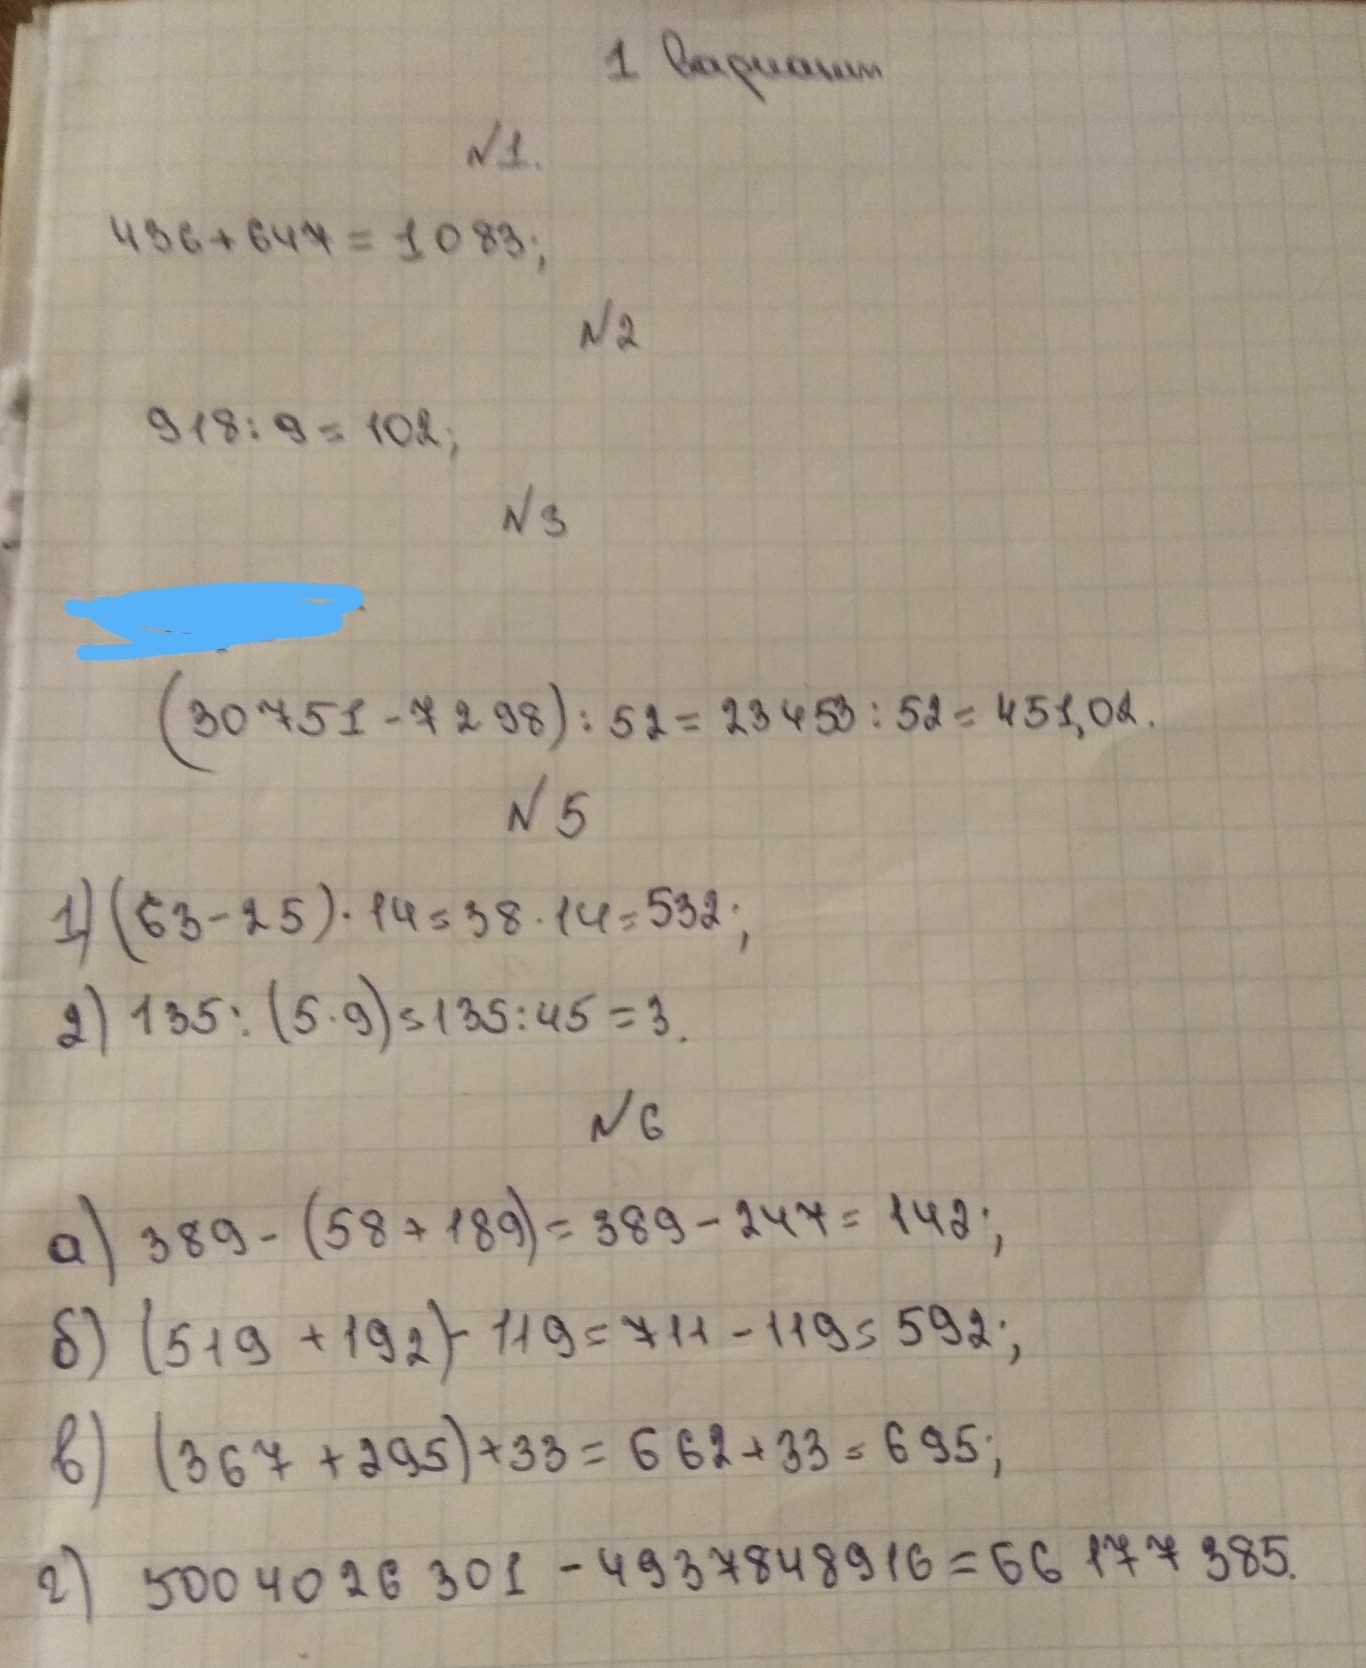 1 Вариант
N1.
436+647=1083;
N2
918:9=102;
N3
(30751-7298):52=23453:52=451,02.
N5
1)(63-25)·14=38·14=532;
2) 135:(5·9)=135:45=3.
N6
а) 389-(58+189)=389-247=142;
б) (519+192)-119=711-119=592;
в) (367+295)+33=662+33=695;
г) 5004026301-4937848916=66177385.